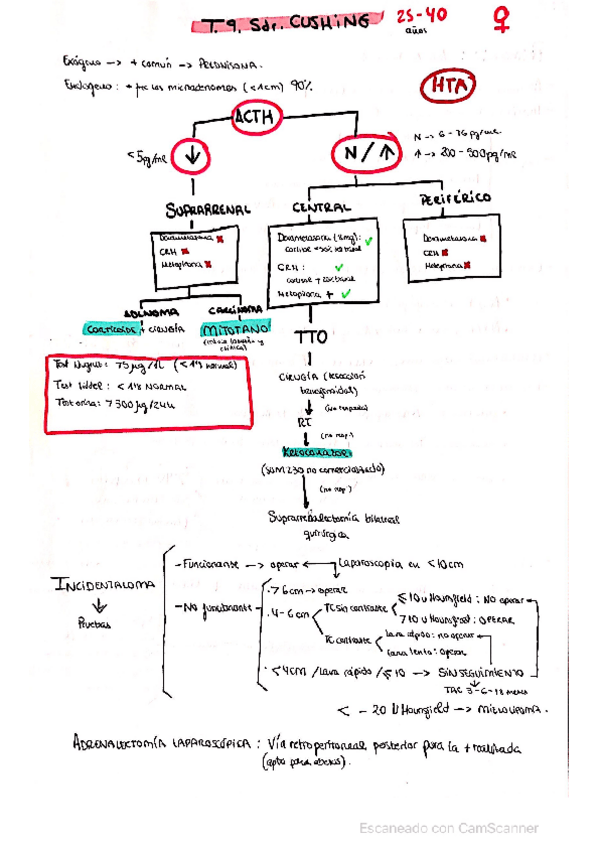 T.9. Sdr. CUSHING
25-40
años
♀
Exógeno -> + común -> PREDNISONA.
Endógeno: + frec los microadenomas (<1cm) 90%
HTA
ACTH
<5pg/ml
↓
N/↑
N -> 6-76 pg/ml
↑ -> 200-500pg/ml
SUPRARRENAL
CENTRAL
PERIFÉRICO
Dexametasona ✗
CRH ✗
Metopirona ✗
Dexametasona (8mg): ✓
CRH: ✓
Metopirona + ✓
Dexametasona ✗
CRH ✗
Metopirona ✗
ADENOMA
CARCINOMA
CORTICOIDES + CIRUGÍA
MITOTANO
TTO
Test Nugent: 75µg/1L (<1'8 normal)
Test Liddel: <1'8 NORMAL
Test orina: 7300µg/24h
CIRUGÍA (resección
transfenoidal)
(no respuesta)
RT
(no resp.)
Ketoconazol
(SOM 230 no comercializado)
(no resp)
Suprarrenalectomía bilateral
quirúrgica
INCIDENTALOMA
Pruebas
- Funcionante -> operar <- Laparoscopia en <10cm
- No funcionante
· 76cm -> operar
· 4-6cm
TC sin contraste
≤10 U Hounsfield: NO operar
710 U Hounsfield: OPERAR
TC contraste
Lava rápido: no operar
Lava lento: operar
· <4cm / lava rápido / ≤10 -> SIN SEGUIMIENTO
TAC 3-6-18 meses
< -20 U Hounsfield -> MIELOLIPOMA.
ADRENALECTOMÍA LAPAROSCÓPICA: Vía retroperitoneal posterior para la + realizada
(apta para obesos).
Escaneado con CamScanner